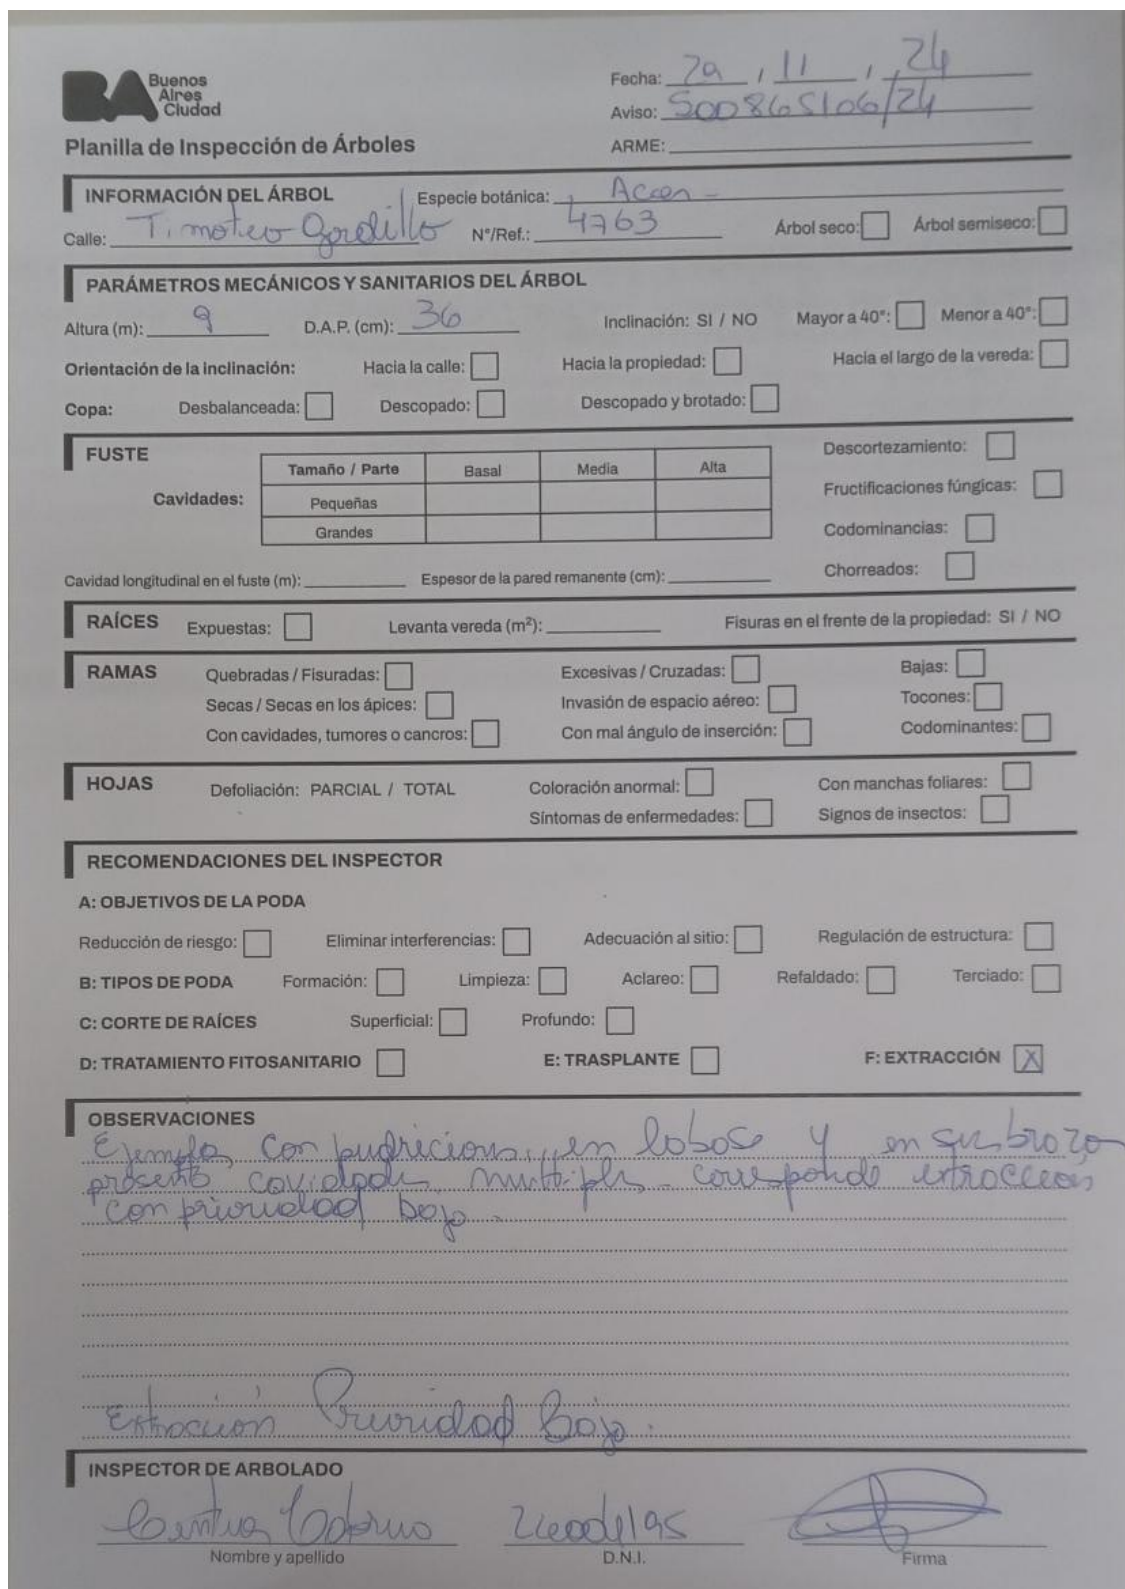 BA Buenos
Aires
Ciudad
Fecha: 29 / 11 / 24
Aviso: 500865106/24
Planilla de Inspección de Árboles
ARME:
INFORMACIÓN DEL ÁRBOL Especie botánica: Acer
Calle: Timoteo Gordillo N°/Ref.: 4763 Árbol seco: Árbol semiseco:
PARÁMETROS MECÁNICOS Y SANITARIOS DEL ÁRBOL
Altura (m): 9 D.A.P. (cm): 36 Inclinación: SI / NO Mayor a 40°: Menor a 40°:
Orientación de la inclinación: Hacia la calle: Hacia la propiedad: Hacia el largo de la vereda:
Copa: Desbalanceada: Descopado: Descopado y brotado:
FUSTE
Descortezamiento:
Tamaño / Parte Basal Media Alta
Cavidades: Pequeñas
Fructificaciones fúngicas:
Grandes
Codominancias:
Chorreados:
Cavidad longitudinal en el fuste (m): Espesor de la pared remanente (cm):
RAÍCES Expuestas: Levanta vereda (m²): Fisuras en el frente de la propiedad: SI / NO
RAMAS Quebradas / Fisuradas: Excesivas / Cruzadas: Bajas:
Secas / Secas en los ápices: Invasión de espacio aéreo: Tocones:
Con cavidades, tumores o cancros: Con mal ángulo de inserción: Codominantes:
HOJAS Defoliación: PARCIAL / TOTAL Coloración anormal: Con manchas foliares:
Síntomas de enfermedades: Signos de insectos:
RECOMENDACIONES DEL INSPECTOR
A: OBJETIVOS DE LA PODA
Reducción de riesgo: Eliminar interferencias: Adecuación al sitio: Regulación de estructura:
B: TIPOS DE PODA Formación: Limpieza: Aclareo: Refaldado: Terciado:
C: CORTE DE RAÍCES Superficial: Profundo:
D: TRATAMIENTO FITOSANITARIO E: TRASPLANTE F: EXTRACCIÓN X
OBSERVACIONES
Ejemplar con pudricion en y en su
presenta cavidades multiples corresponde extraccion
con prioridad baja.
Extracción Prioridad Baja.
INSPECTOR DE ARBOLADO
Nombre y apellido D.N.I. Firma